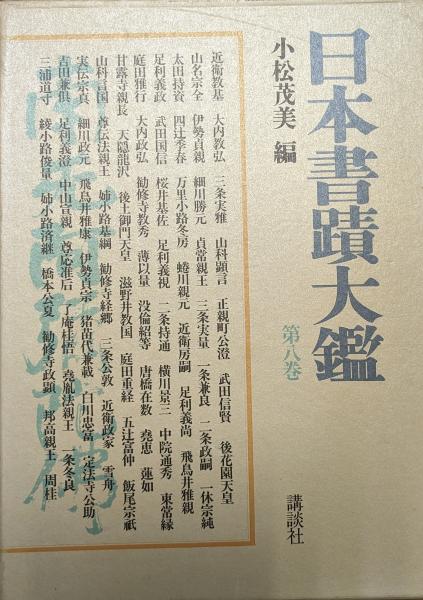 日本書蹟大鑑
第八巻
小松茂美 編
講談社
近衛教基 大内教弘 三条実雅 山科顕言 正親町公澄 武田信賢 後花園天皇
山名宗全 伊勢貞親 細川勝元 貞常親王 三条実量 一条兼良 二条政嗣 一休宗純
太田持資 四辻季春 万里小路冬房 蜷川親元 近衛房嗣 足利義尚 飛鳥井雅親
足利義政 武田国信 桜井基佐 足利義視 二条持通 横川景三 中院通秀 東常縁
庭田雅行 大内政弘 勧修寺教秀 薄以量 没倫紹等 唐橋在数 堯恵 蓮如
甘露寺親長 天隠龍沢 後土御門天皇 滋野井教国 庭田重経 五辻富仲 飯尾宗祇
山科言国 尊伝法親王 姉小路基綱 勧修寺経郷 三条公敦 近衛政家 雪舟
実伝宗真 細川政元 飛鳥井雅康 伊勢貞宗 猪苗代兼載 白川忠富 定法寺公助
吉田兼倶 足利義澄 中山宣親 尊応准后 了庵桂悟 堯胤法親王 一条冬良
三浦道寸 綾小路俊量 姉小路済継 橋本公夏 勧修寺政顕 邦高親王 周桂